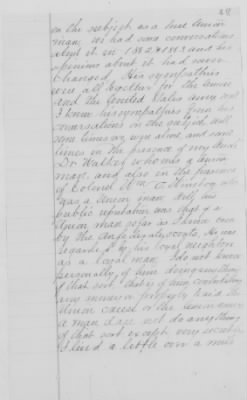 on the subject as a true Union
man, we had some conversations
about it in 1862 & 1863 and his
opinions about it had never
changed. His sympathies
were all together for the Union
and the United States Army and
I know his sympathies from his
conversations on the subject with
some times we were alone and some
times in the presence of my Uncle
Dr Walkey who was a Union
man, and also in the presence
of Colonel Wm C. who
was a Union man. Only his
public reputation was that of a
Union man so far as I know even
by the He was
regarded by his loyal neighbors
as a loyal man. I do not know
personally of him doing any thing
of that sort, that is of any contributing
any money or property to aid the
Union cause or the Union army
a man dare not do anything
of that sort except very secretly
I lived a little over a mile